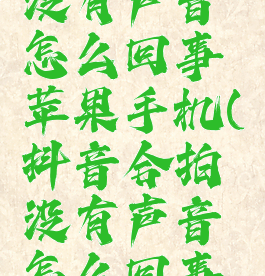 没有声音
怎么回事
苹果手机(
抖音合拍
没有声音
怎么回事